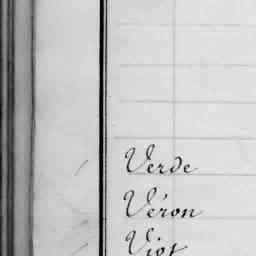 Verde
Véron
Viot